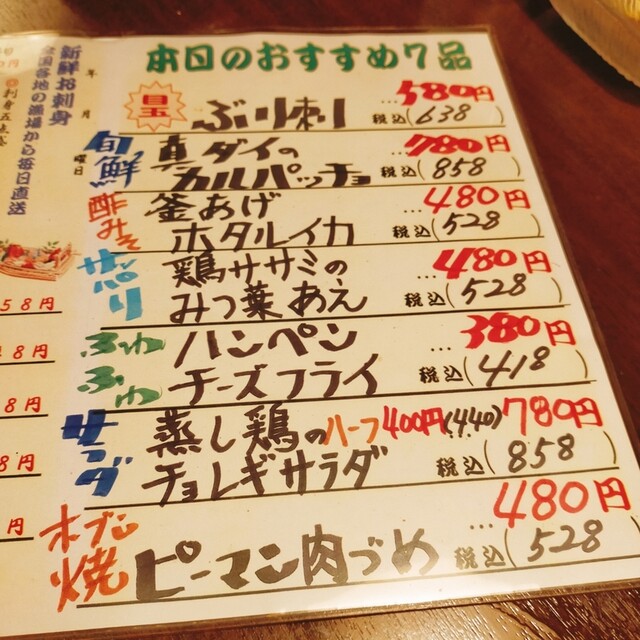 本日のおすすめ7品
目玉 ぶり刺し …580円 税込(638)
旬鮮 真ダイの …780円
カルパッチョ 税込(858)
酢みそ 釜あげ …480円
ホタルイカ 税込(528)
サッパリ 鶏ササミの …480円
みつ葉あえ 税込(528)
ふわふわ ハンペン …380円
チーズフライ 税込(418)
サラダ 蒸し鶏の ハーフ400円(440) 780円
チョレギサラダ 税込(858)
オーブン焼 …480円
ピーマン肉づめ 税込(528)
年 月 曜日
新鮮お刺身
全国各地の漁場から毎日直送
58円
8円
8円
8円
円